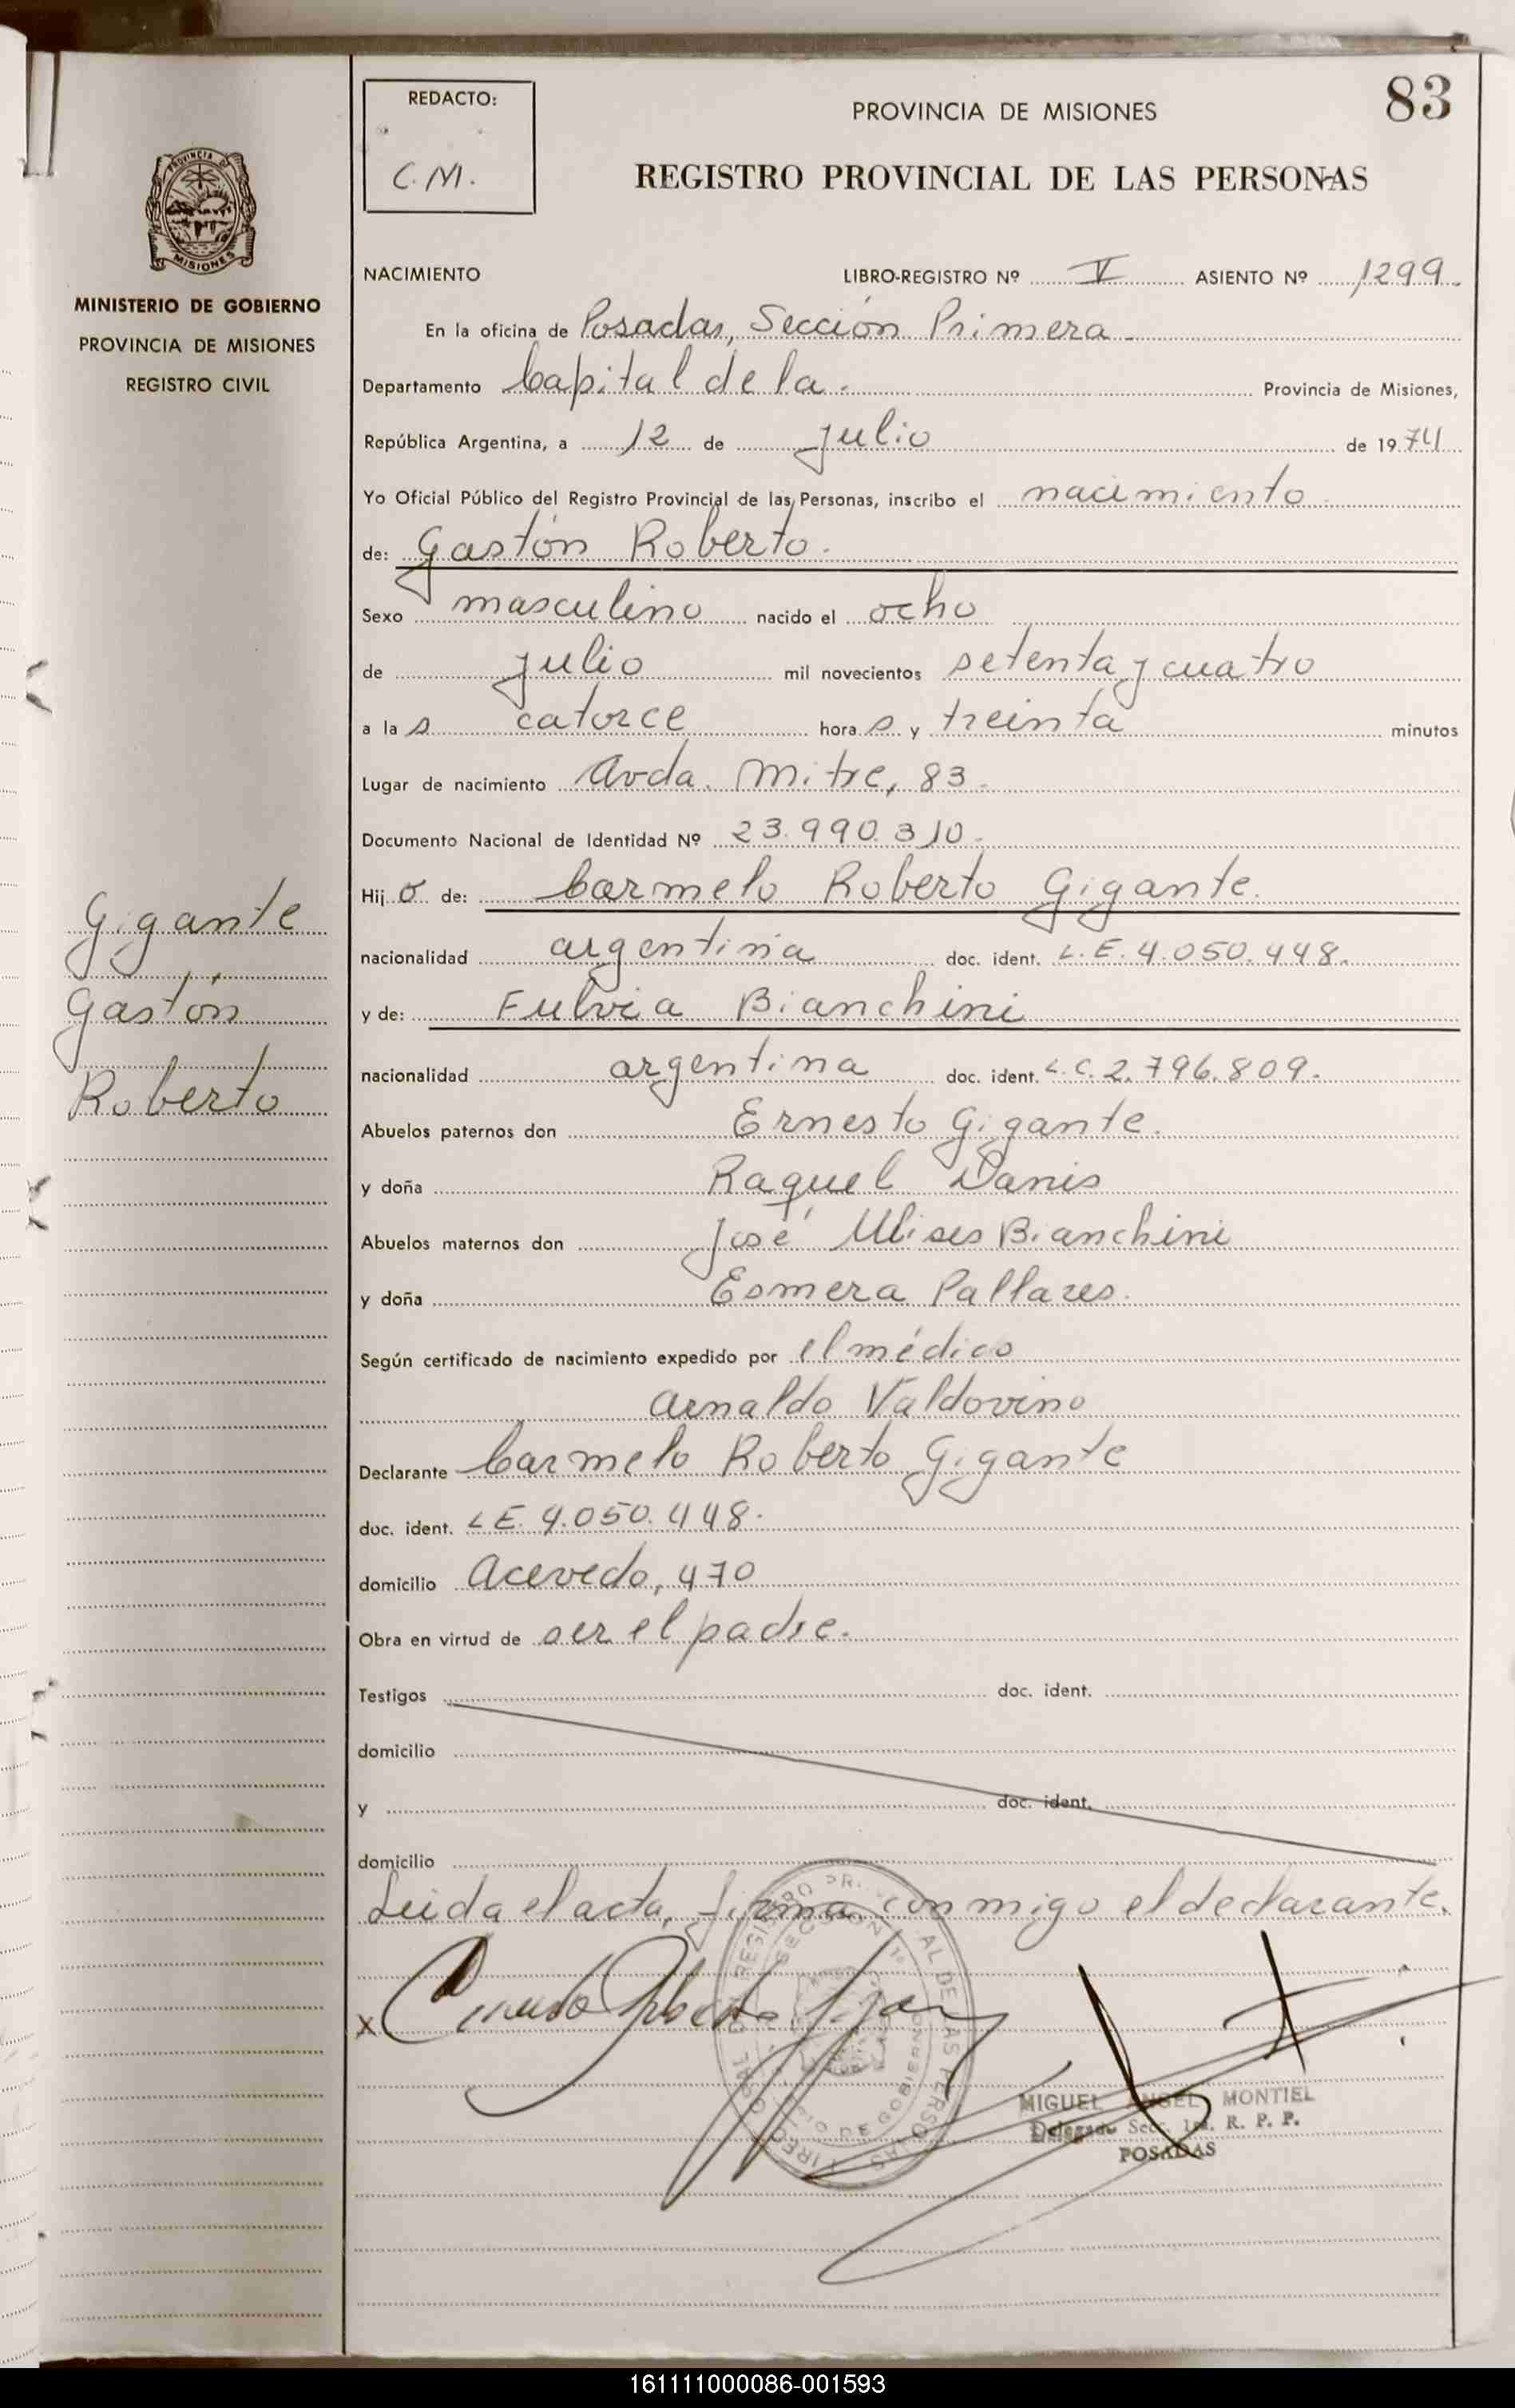 83
REDACTO:
C.M.
PROVINCIA DE MISIONES
REGISTRO PROVINCIAL DE LAS PERSONAS
PROVINCIA DE
MISIONES
MINISTERIO DE GOBIERNO
PROVINCIA DE MISIONES
REGISTRO CIVIL
Gigante
Gastón
Roberto
NACIMIENTO LIBRO-REGISTRO Nº V ASIENTO Nº 1299.
En la oficina de Posadas, Sección Primera
Departamento Capital de la. Provincia de Misiones,
República Argentina, a 12 de julio de 1974
Yo Oficial Público del Registro Provincial de las Personas, inscribo el nacimiento
de: Gastón Roberto.
Sexo masculino nacido el ocho
de julio mil novecientos setenta y cuatro
a la s catorce hora s y treinta minutos
Lugar de nacimiento Avda. Mitre, 83.
Documento Nacional de Identidad Nº 23.990.310.
Hij o de: Carmelo Roberto Gigante.
nacionalidad argentina doc. ident. L.E. 4.050.448.
y de: Fulvia Bianchini
nacionalidad argentina doc. ident. L.C. 2.796.809.
Abuelos paternos don Ernesto Gigante.
y doña Raquel Danis
Abuelos maternos don José Ulises Bianchini
y doña Esmera Pallares.
Según certificado de nacimiento expedido por el médico
Arnaldo Valdovino
Declarante Carmelo Roberto Gigante
doc. ident. L E. 4.050.448.
domicilio Acevedo, 470
Obra en virtud de ser el padre.
Testigos doc. ident.
domicilio
y doc. ident.
domicilio
Leida el acta, firma conmigo el declarante.
X
MIGUEL ANGEL MONTIEL
Delegado Sec. 1ra. R. P. P.
POSADAS
161111000086-001593